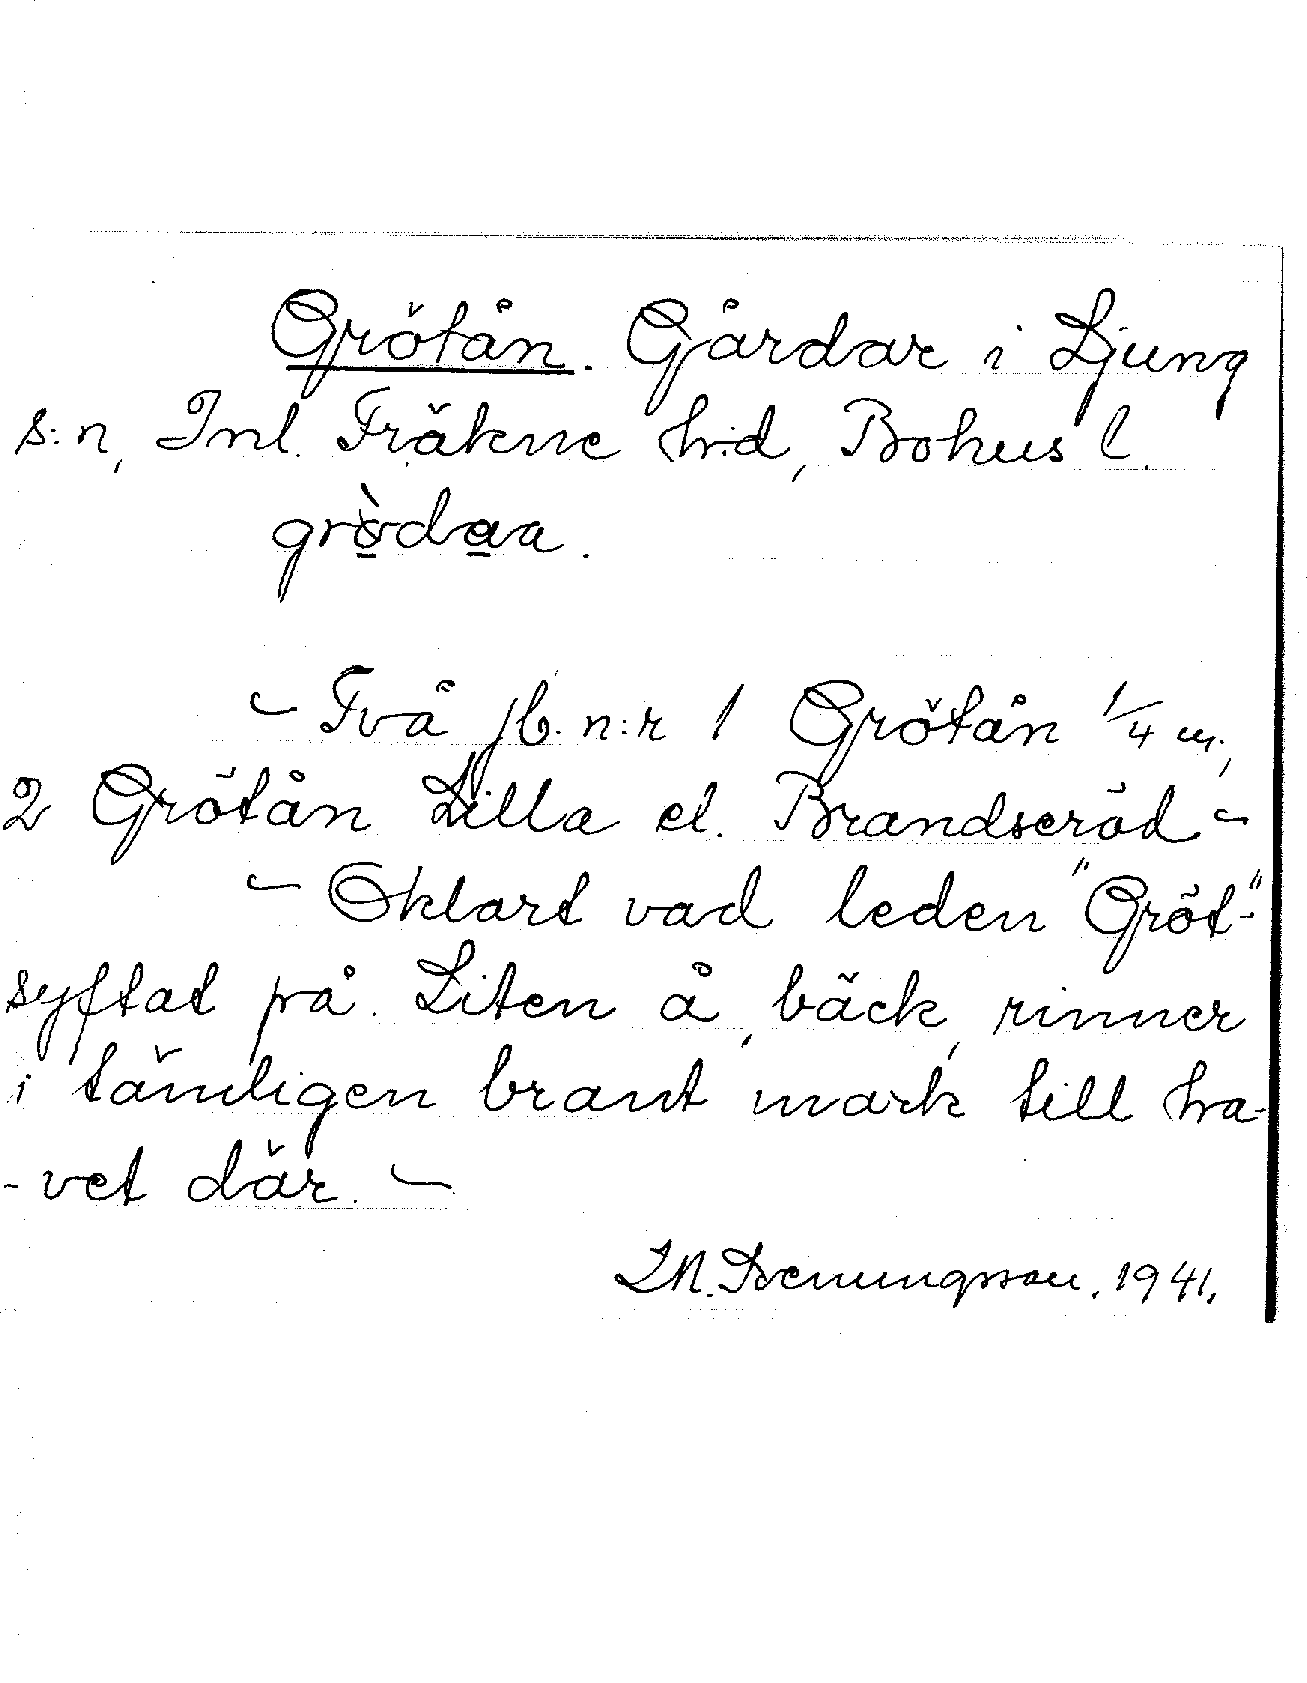 Grötån. Gårdar i Ljung
s:n, Inl. Fräkne h:d, Bohus l.
grò̱da̱a.
– Två jb. n:r 1 Grötån 1/4 m,
2 Grötån Lilla el. Brandseröd –
– Oklart vad leden "Gröt-"
syftat på. Liten å, bäck, rinner
i tämligen brant mark till ha-
-vet där. –
1941.